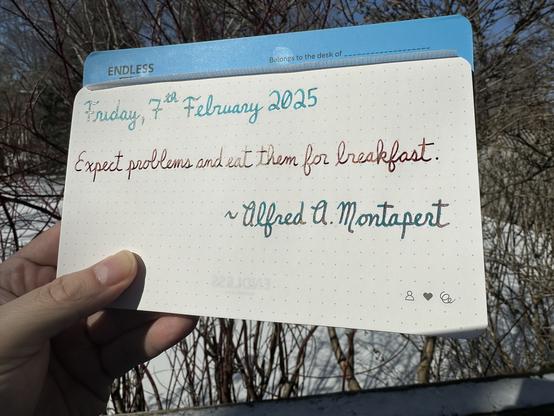 ENDLESS
Belongs to the desk of
Friday, 7th February 2025
Expect problems and eat them for breakfast.
~ Alfred A. Montapert
ENDLESS